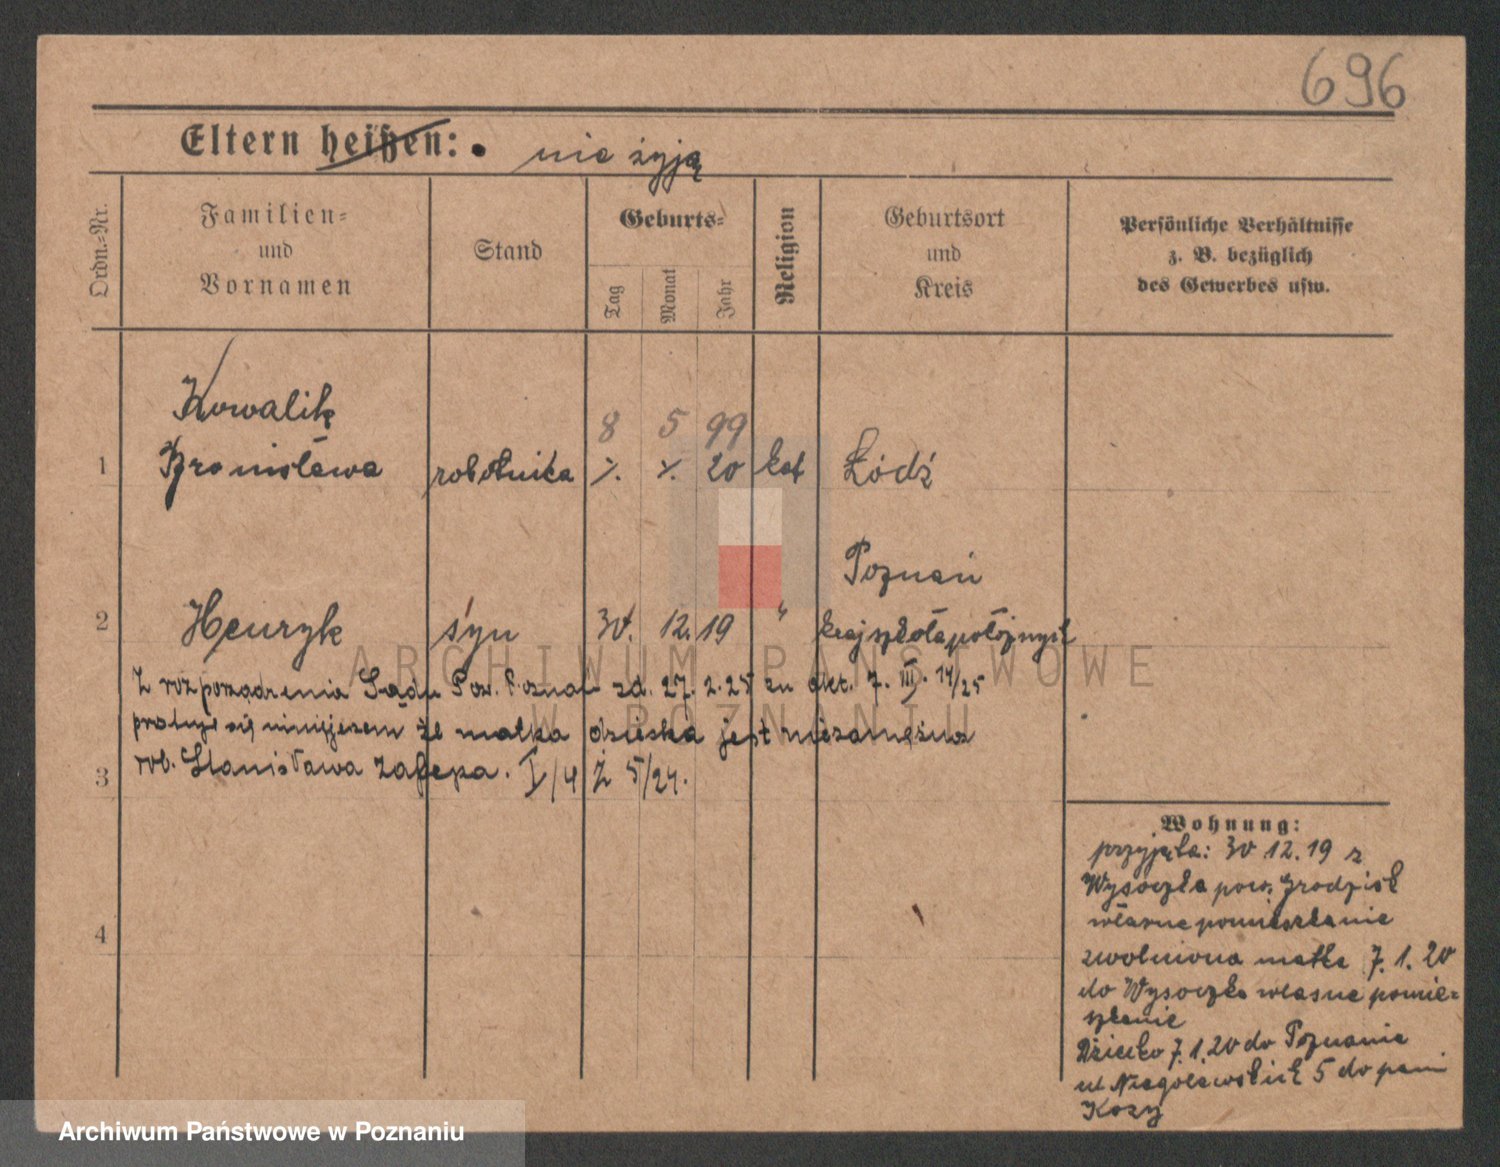 696
Eltern heißen: nie żyją
Ordn.-Nr.
Familien-
und
Vornamen
Stand
Geburts-
Tag
Monat
Jahr
Religion
Geburtsort
und
Kreis
Persönliche Verhältnisse
z. B. bezüglich
des Gewerbes usw.
Kowalik
8 5 99
1 Bronisława robotnica 20 kat Łódź
Poznań
2 Henryk syn 30. 12. 19 " kraj szkoła położnych
Z rozporządzenia Sądu Pow. Poznań zd. 27. 2. 25 zn akt. 7. III. 14/25
się niniejszem że matka dziecka jest niezamężna
3 rob. Stanisława I/4 Ż 5/24.
4
Wohnung:
przyjęta: 30 12. 19 z
Wysoczka pow. Grodzisk
własne pomieszkanie
zwolniona matka 7. 1. 20
do Wysoczka własne pomie-
szkanie
Dziecko 7. 1. 20 do Poznania
ul Niegolewskich 5 do pani
Kozy
ARCHIWUM PAŃSTWOWE
W POZNANIU
Archiwum Państwowe w Poznaniu